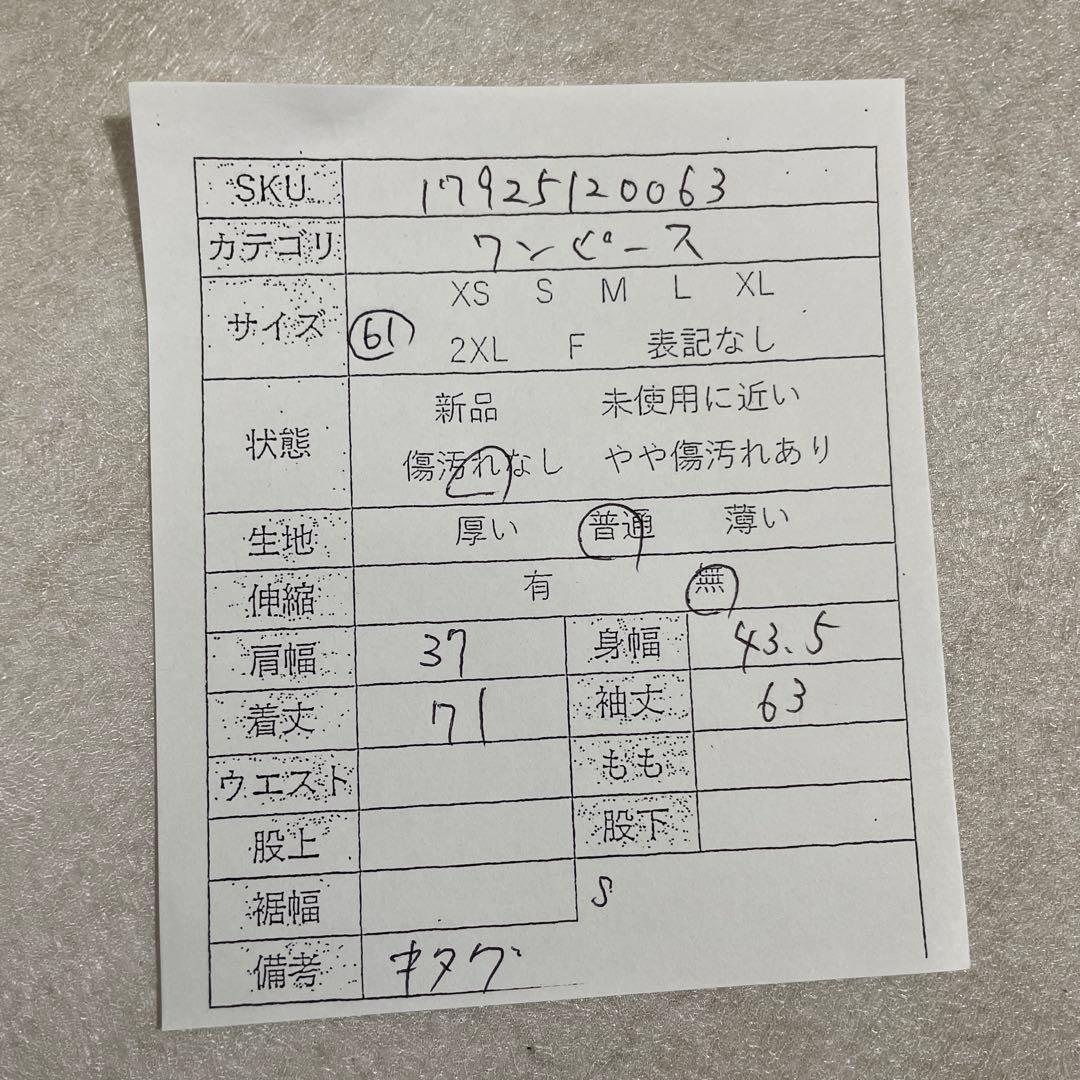 SKU 17925120063
カテゴリ ワンピース
XS S M L XL
サイズ 61 2XL F 表記なし
新品 未使用に近い
状態
傷汚れなし やや傷汚れあり
生地 厚い 普通 薄い
伸縮 有 無
肩幅 37 身幅 43.5
着丈 71 袖丈 63
ウエスト もも
股上 股下
裾幅 S
備考 キタグ